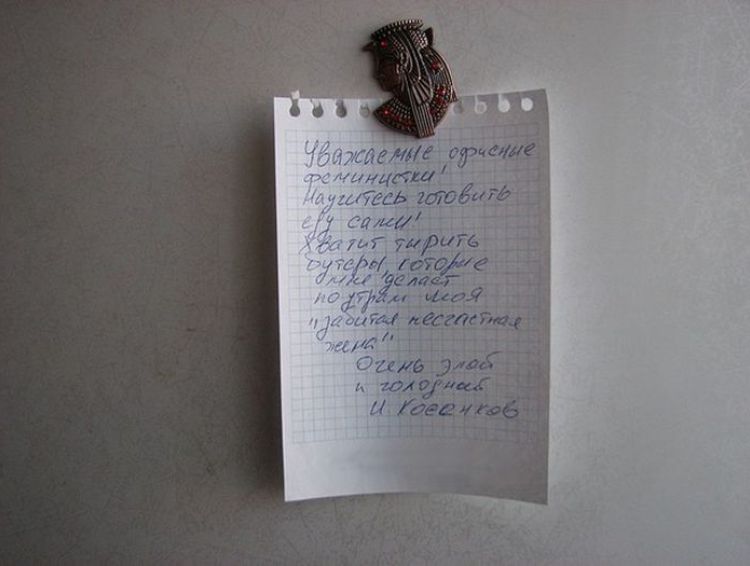 Уважаемые офисные
феминистки!
Научитесь готовить
еду сами!
Хватит тырить
бутеры, которые
мне делает
по утрам моя
"забитая несчастная
жена"
Очень злой
и голодный
И. Косенков